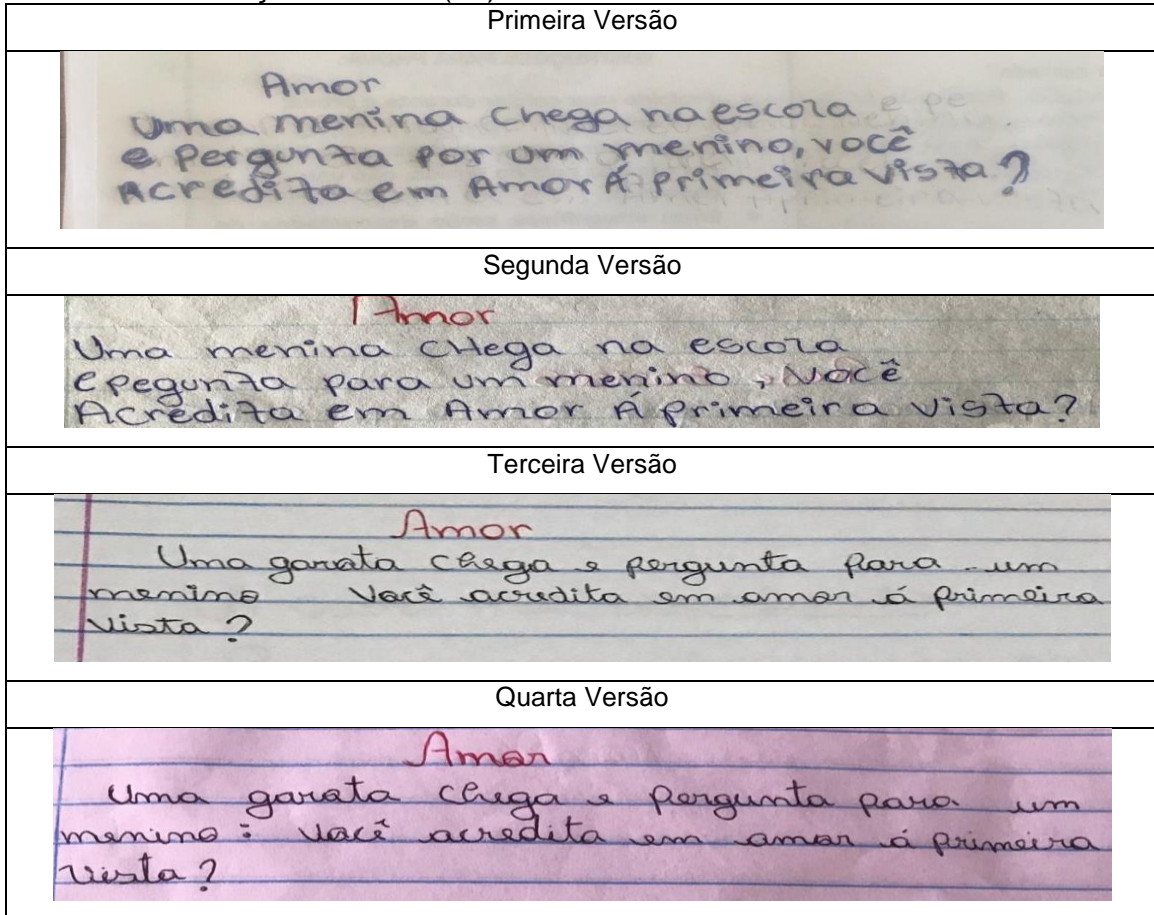 Primeira Versão
Amor
Uma menina chega na escola
e pergunta por um menino, você
Acredita em Amor Á primeira vista?
Segunda Versão
Amor
Uma menina cHega na escola
e pegunta para um menino, você
Acredita em Amor Á primeira vista?
Terceira Versão
Amor
Uma garota chega e pergunta para um
menino Você acredita em amor á primeira
vista?
Quarta Versão
Amor
Uma garota chega e pergunta para um
menino: você acredita em amor á primeira
vista?